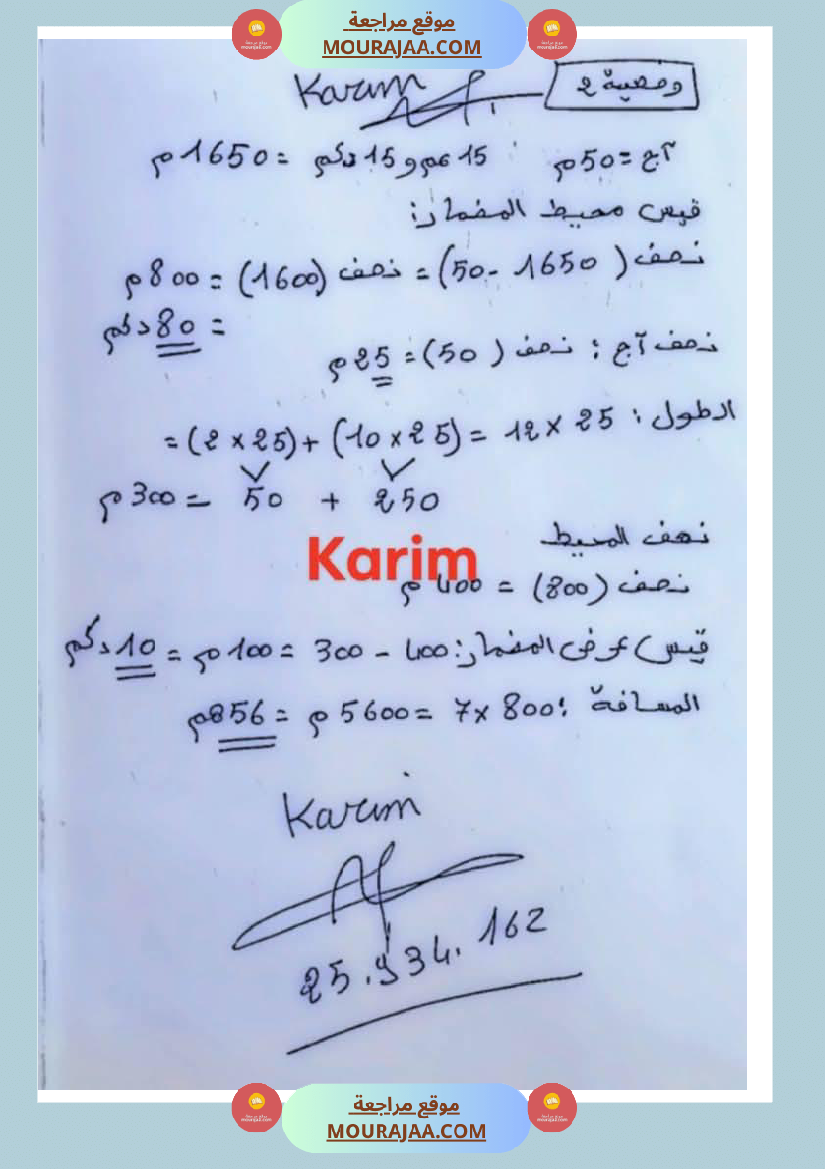 موقع مراجعة
MOURAJAA.COM
Karim
وضعية 2
آج = 50م 15هم و 15دكم = 1650م
قيس محيط المضمار:
نصف ( 1650 - 50) = نصف (1600) = 800م
= 80دكم
نصف آج : نصف ( 50) = 25م
الطول : 25 × 12 = (25 × 10) + (25 × 2) =
250 + 50 = 300م
نصف المحيط
Karim
نصف (800) = 400م
قيس عرض المضمار: 400 - 300 = 100م = 10دكم
المسافة : 800 × 7 = 5600م = 56هم
Karim
25.934.162
موقع مراجعة
MOURAJAA.COM